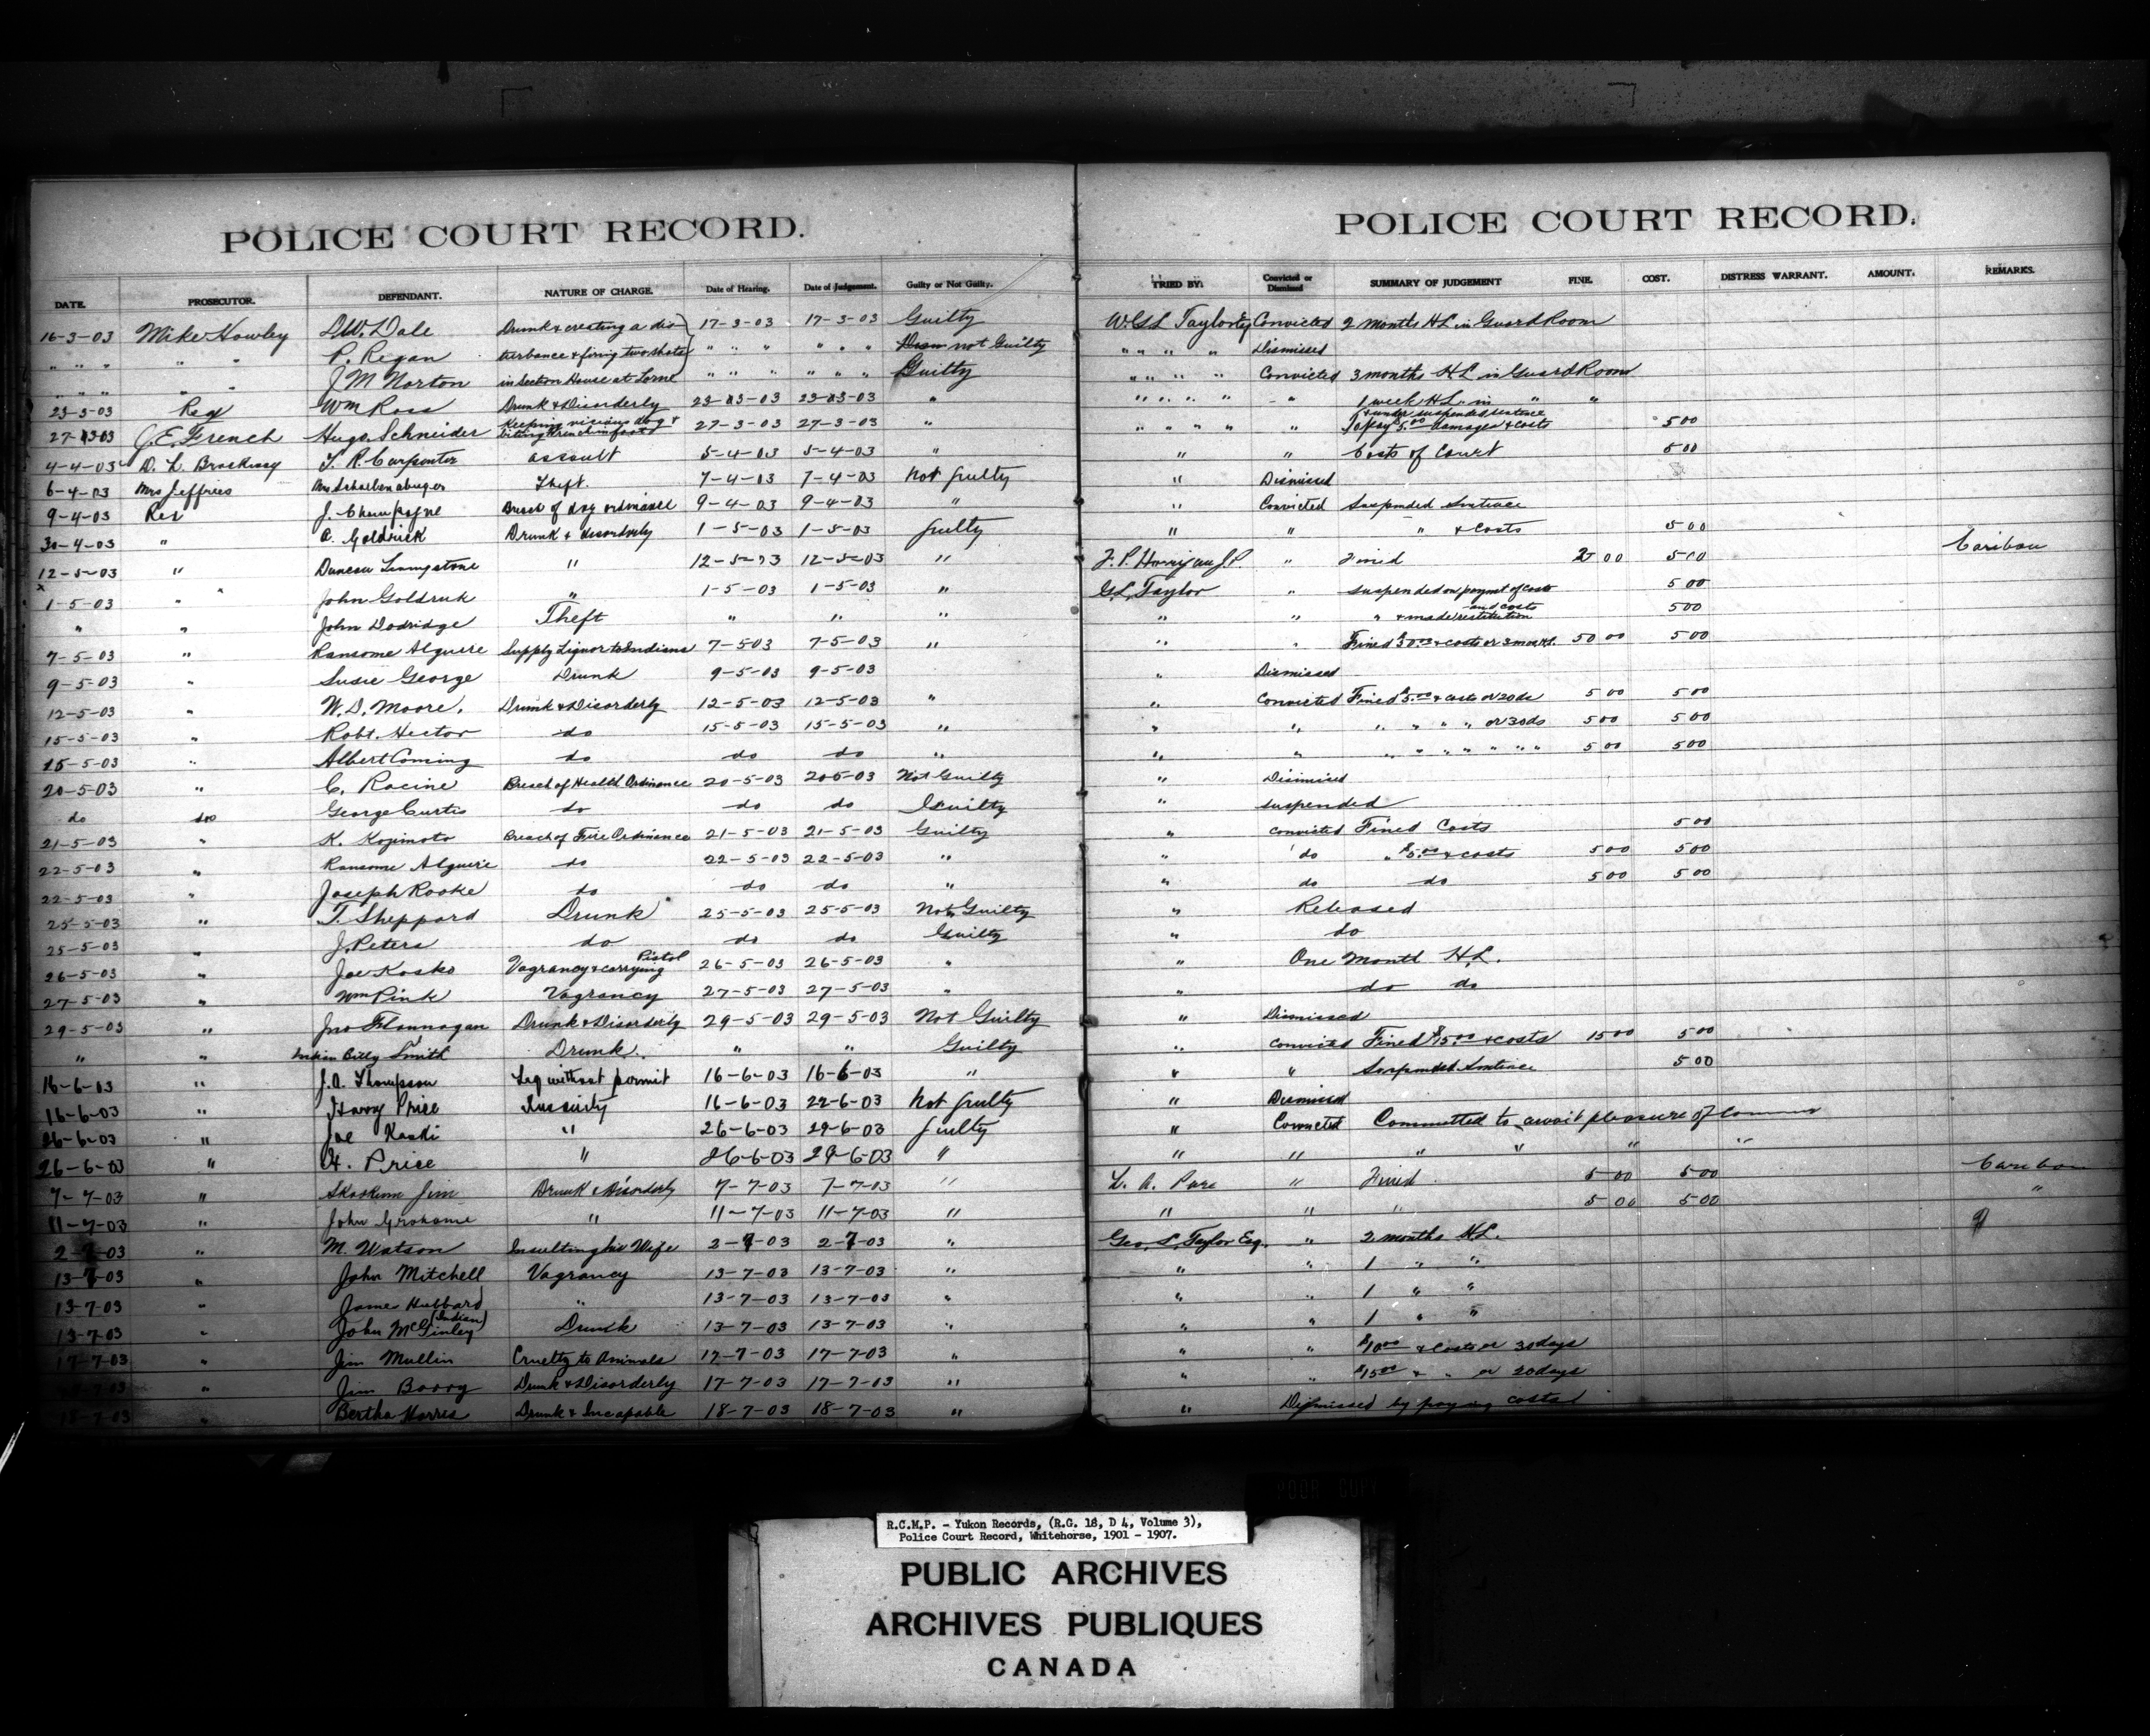 POLICE COURT RECORD. POLICE COURT RECORD.
DATE. PROSECUTOR. DEFENDANT. NATURE OF CHARGE. Date of Hearing. Date of Judgement. Guilty or Not Guilty. TRIED BY: Convicted or Dismissed SUMMARY OF JUDGEMENT FINE. COST. DISTRESS WARRANT. AMOUNT. REMARKS.
16-3-03 Mike Howley D.W. Dale Drunk & creating a dis- 17-3-03 17-3-03 Guilty W. G L Taylor Esq Convicted 2 months HL in Guard Room
" " " " " P. Regan turbance & firing two shots " " " " " " not Guilty " " " " Dismissed
" " " " " J M Norton in Section House at Lorne " " " " " " Guilty " " " " Convicted 3 months H.L in Guard Room
23-3-03 Rex Wm Ross Drunk & Disorderly 23-3-03 23-3-03 " " " " " " 1 week H.L. in " "
27-3-03 J. E. French Hugo Schneider Keeping vicious dog & biting French in foot 27-3-03 27-3-03 " " " " " " & under suspended sentence To pay 5.00 damages & costs 5 00
4-4-03 D. L. T. R. Carpenter assault 5-4-03 5-4-03 " " " Costs of Court 5 00
6-4-03 Mrs Jeffries Mrs Theft. 7-4-03 7-4-03 Not guilty " Dismissed
9-4-03 Rex J. Champagne Breach of dog ordinance 9-4-03 9-4-03 " " Convicted Suspended Sentence
30-4-03 " A. Goldrick Drunk & disorderly 1-5-03 1-5-03 guilty " " " & Costs 5 00
12-5-03 " Duncan Livingstone " 12-5-03 12-5-03 " F. P. J.P. " Fined 5 00 Caribou
x 1-5-03 " John Goldrick " 1-5-03 1-5-03 " G.L. Taylor " suspended on paymt of costs 5 00
" " John Dodridge Theft " " " " " " & made restitution and costs 5 00
7-5-03 " Ransome Alguire Supply Liquor to Indians 7-5-03 7-5-03 " " " Fined $50.00 & costs or 3 mos HL. 50 00 5 00
9-5-03 " Susie George Drunk 9-5-03 9-5-03 " Dismissed
12-5-03 " W. D. Moore. Drunk & Disorderly 12-5-03 12-5-03 " " Convicted Fined $5.00 & costs or 20 ds 5 00 5 00
15-5-03 " Robt. Hector do 15-5-03 15-5-03 " " " " " " " or 30 ds 5 00 5 00
15-5-03 " Albert Coming do do do " " " " " " " " " " 5 00 5 00
20-5-03 " C. Racine Breach of Health Ordinance 20-5-03 20-5-03 Not Guilty " Dismissed
do do George Curtis do do do Guilty " suspended
21-5-03 " K. Kojimoto Breach of Fire Ordinance 21-5-03 21-5-03 Guilty " convicted Fined Costs 5 00
22-5-03 " Ransome Alguire do 22-5-03 22-5-03 " " do " $5.00 & costs 5 00 5 00
22-5-03 " Joseph Rooke do do do " " do do 5 00 5 00
25-5-03 " T. Sheppard Drunk 25-5-03 25-5-03 Not Guilty " Released
25-5-03 " J. Peters do do do Guilty " do
26-5-03 " Joe Kosko Vagrancy & carrying Pistol 26-5-03 26-5-03 " " One Month H.L.
27-5-03 " Wm Pink Vagrancy 27-5-03 27-5-03 " " do do
29-5-03 " Jno Flannagan Drunk & Disorderly 29-5-03 29-5-03 Not Guilty " Dismissed
" " Indian Billy Smith Drunk. " " Guilty " convicted Fined $15.00 & costs 15 00 5 00
16-6-03 " J. A. Thompson Liq without permit 16-6-03 16-6-03 " " " Suspended Sentence 5 00
16-6-03 " Harry Price Insanity 16-6-03 22-6-03 Not guilty " Dismissed
26-6-03 " Joe Koski " 26-6-03 29-6-03 guilty " Convicted Committed to await pleasure of
26-6-03 " H. Price " 26-6-03 29-6-03 " " " " " " "
7-7-03 " Skookum Jim Drunk & Disorderly 7-7-03 7-7-03 " L. A. Pare " Fined 5 00 5 00 Caribou
11-7-03 " John Grahame " 11-7-03 11-7-03 " " " " 5 00 5 00 "
2-7-03 " M. Watson Insulting his Wife 2-7-03 2-7-03 " Geo. L. Taylor Esq. " 2 months H.L.
13-7-03 " John Mitchell Vagrancy 13-7-03 13-7-03 " " " 1 " "
13-7-03 " James Hubbard " 13-7-03 13-7-03 " " " 1 " "
13-7-03 " John McGinley (Indian) Drunk 13-7-03 13-7-03 " " " 1 " "
17-7-03 " Jim Mullin Cruelty to Animals 17-7-03 17-7-03 " " " $10.00 & costs or 30 days
" Jim Barry Drunk & Disorderly 17-7-03 17-7-03 " " " $15.00 & " or 20 days
18-7-03 " Bertha Harris Drunk & Incapable 18-7-03 18-7-03 " " Dismissed by paying costs
R.C.M.P. - Yukon Records, (R.G. 18, D 4, Volume 3),
Police Court Record, Whitehorse, 1901 - 1907.
PUBLIC ARCHIVES
ARCHIVES PUBLIQUES
CANADA